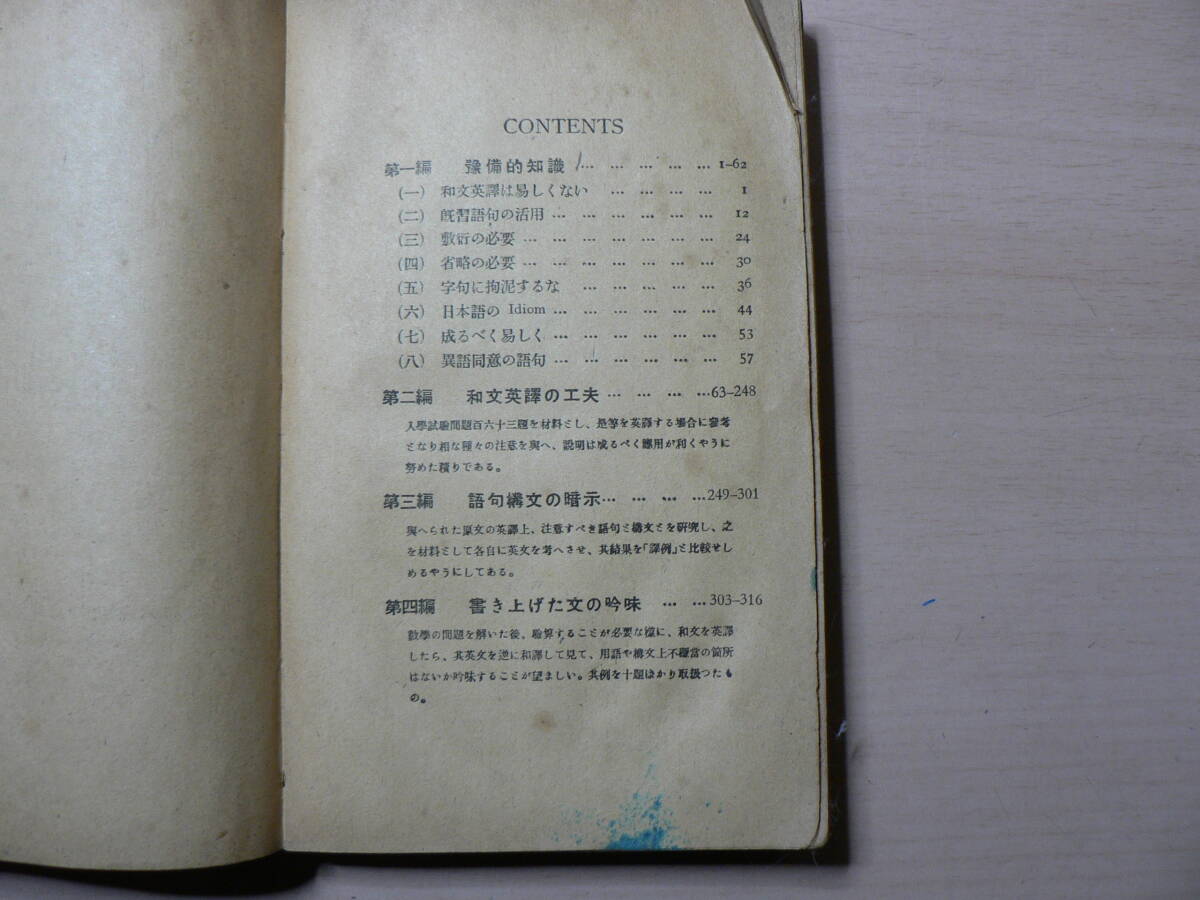 CONTENTS
第一編 豫備的知識 … … … … … 1-62
(一) 和文英譯は易しくない … … … … 1
(二) 旣習語句の活用 … … … … … … 12
(三) 敷衍の必要 … … … … … … … 24
(四) 省略の必要 … … … … … … … 30
(五) 字句に拘泥するな … … … … … 36
(六) 日本語の Idiom … … … … … … 44
(七) 成るべく易しく … … … … … … 53
(八) 異語同意の語句 … … … … … … 57
第二編 和文英譯の工夫 … … … … …63-248
入學試驗問題百六十三題を材料とし、是等を英譯する場合に參考
となり相な種々の注意を與へ、説明は成るべく應用が利くやうに
努めた積りである。
第三編 語句構文の暗示… … … …249-301
與へられた原文の英譯上、注意すべき語句と構文とを硏究し、之
を材料として各自に英文を考へさせ、其結果を「譯例」と比較せし
めるやうにしてある。
第四編 書き上げた文の吟味 … …303-316
數學の問題を解いた後、驗算することが必要な樣に、和文を英譯
したら、其英文を逆に和譯して見て、用語や構文上不穩當の箇所
はないか吟味することが望ましい。其例を十題ばかり取扱つたも
の。